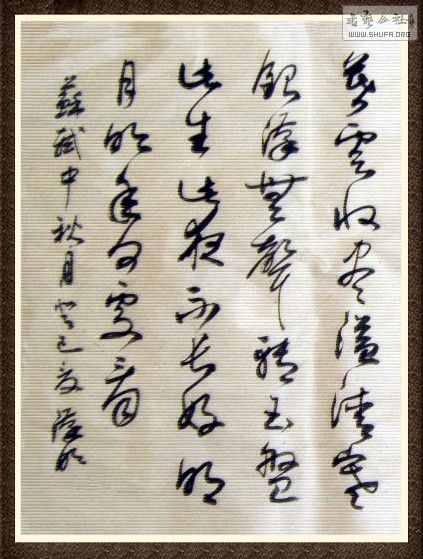 书艺公社
WWW.SHUFA.ORG
暮雲收盡溢清寒
銀漢無聲轉玉盤
此生此夜不長好明
月明年何處看
蘇軾中秋月癸巳夏